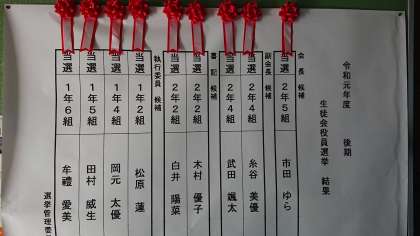 令和元年度 後期
生徒会役員選挙 結果
会長 候補
当選 2年5組 市田 ゆら
副会長 候補
当選 2年4組 糸谷 美優
当選 2年4組 武田 颯太
書記 候補
当選 2年2組 木村 優子
当選 2年2組 白井 陽菜
執行委員 候補
当選 1年2組 松原 蓮
当選 1年4組 岡元 太優
当選 1年5組 田村 威生
当選 1年6組 牟禮 愛美
選挙管理委